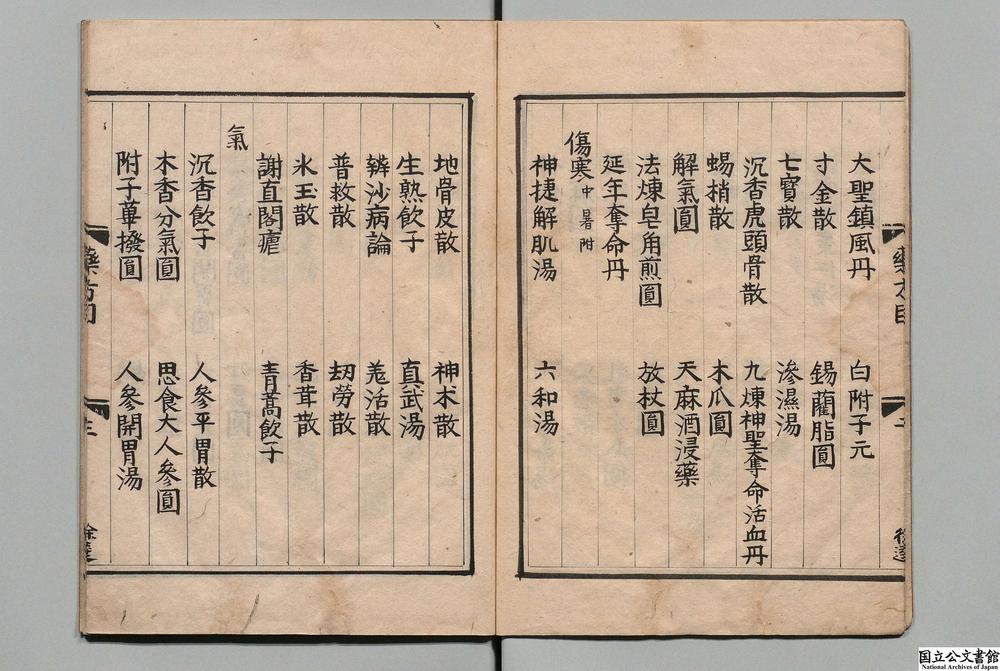 大聖鎮風丹　白附子元
寸金散　錫藺脂圓
七寶散　滲濕湯
沉香虎頭骨散　九煉神聖奪命活血丹
蝎梢散　木瓜圓
解氣圓　天麻酒浸藥
法煉皂角煎圓　放杖圓
延年奪命丹
傷寒中暑附
神捷解肌湯　六和湯
地骨皮散　神朮散
生熟飲子　真武湯
辨沙病論　羗活散
普救散　刼勞散
氷玉散　香茸散
謝直閣瘧　青蒿飲子
氣
沉香飲子　人參平胃散
木香分氣圓　思食大人參圓
附子蓽撥圓　人參開胃湯
藥方目
國立公文書館
National Archives of Japan